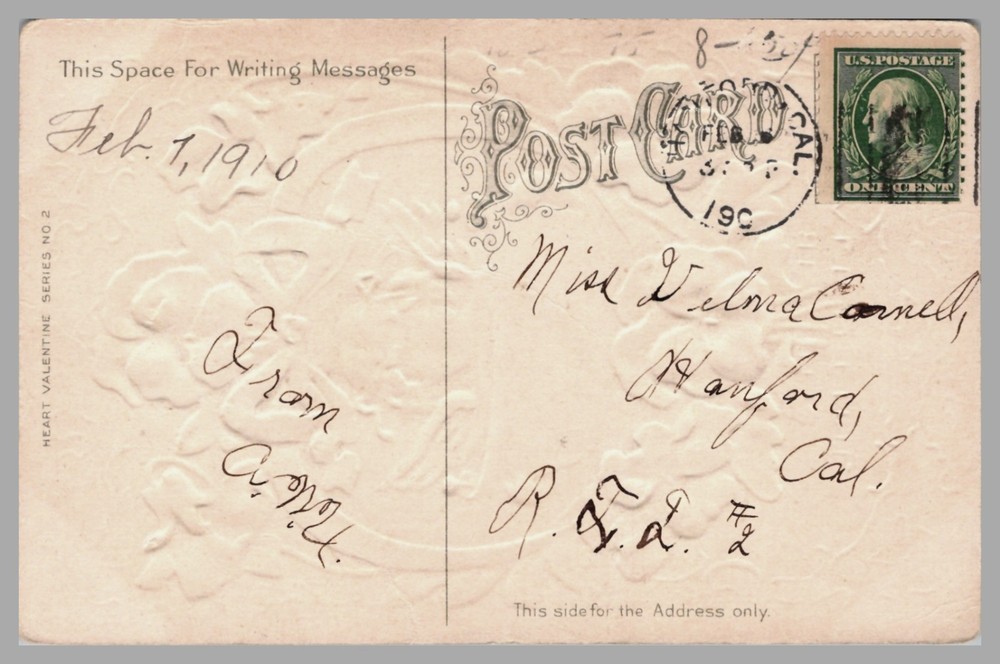 This Space For Writing Messages
Feb. 1, 1910
HEART VALENTINE SERIES NO. 2
From
POST CARD
CAL.
FEB
190
U.S. POSTAGE
ONE CENT
Miss Velma Cornell,
Hanford,
Cal.
R.F.D. #2
This side for the Address only.